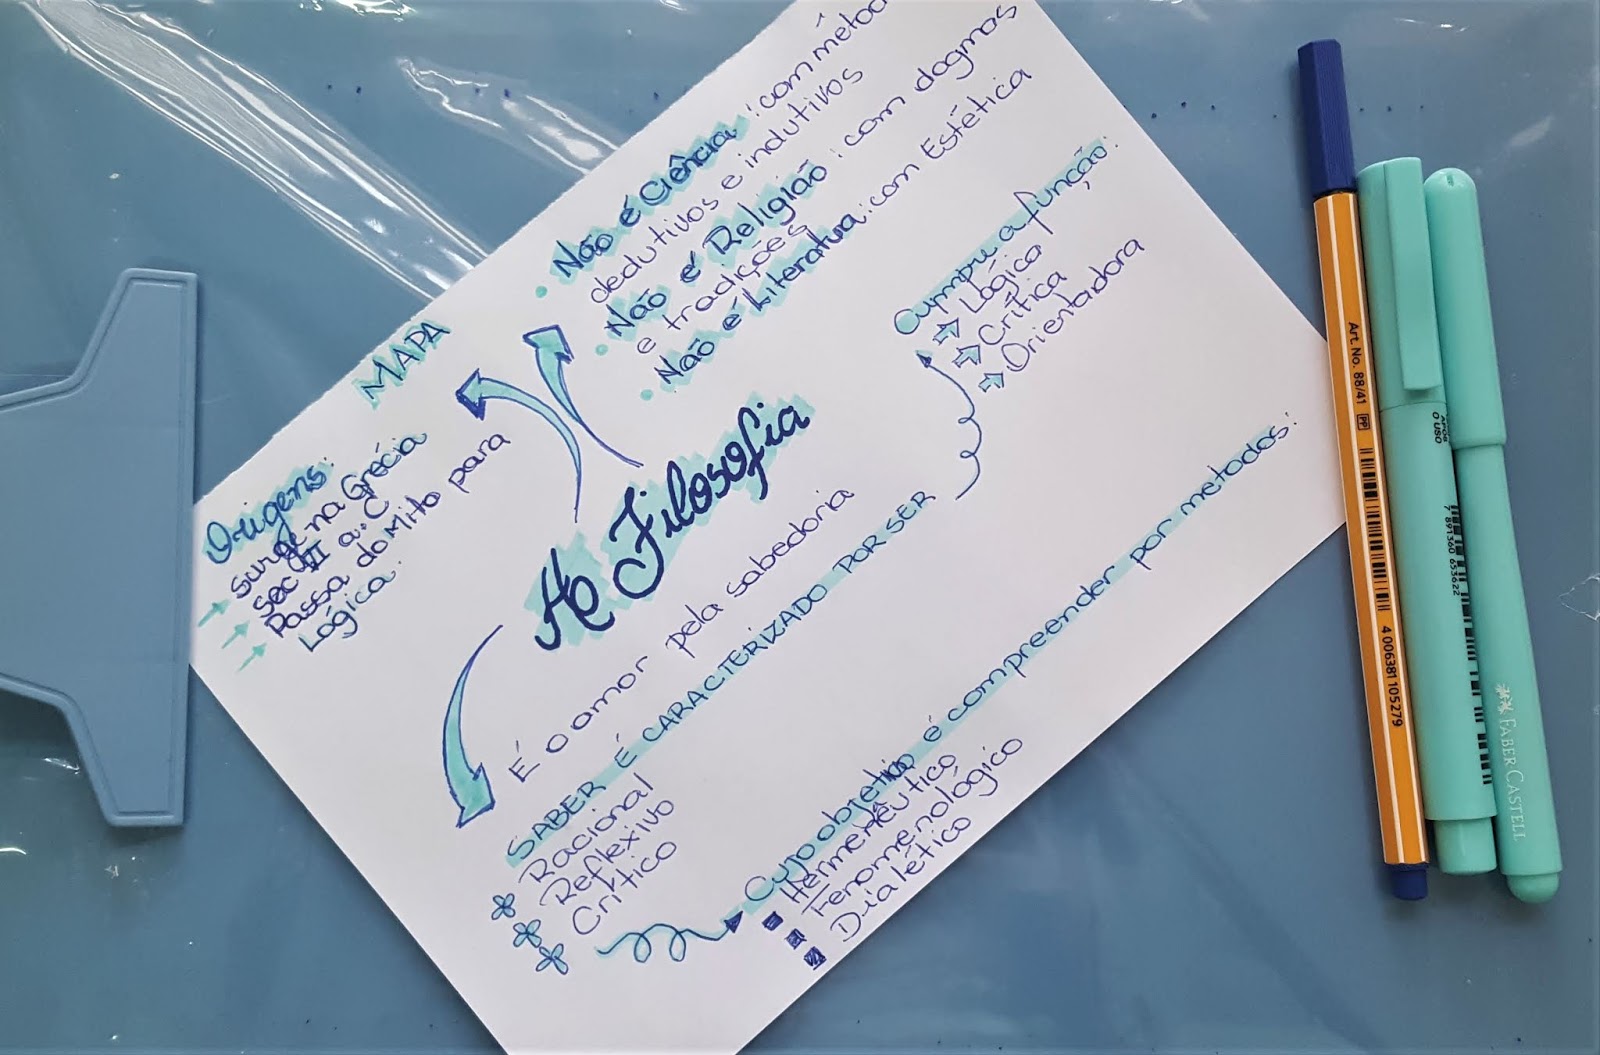 MAPA
Origens:
surge na Grécia
sec VI a.C
Passa do Mito para
Lógica.
Não é Ciência: com métod
dedutivos e indutivos
Não é Religião: com dogmas
e tradições
Não é Literatura: com Estética
A Filosofia
É o amor pela sabedoria
Cumpre a função:
Lógica
Crítica
Orientadora
SABER É CARACTERIZADO POR SER
Racional
Reflexivo
Crítico
Cujo objetivo é compreender por metodos:
Hermenêutico
Fenomenológico
Dialético
Art. No. 88/41
PP
4 006381 105279
APÓS
O USO
7 891360 653622
FABER CASTELL